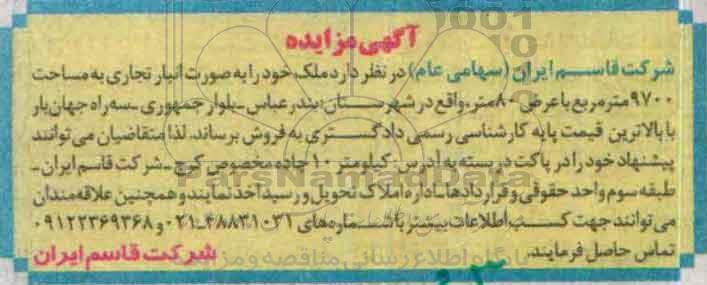 آگهی مزایده
شرکت قاسم ایران (سهامی عام) در نظر دارد ملک خود را به صورت انبار تجاری به مساحت
۹۷۰۰ مترمربع با عرض ۸۰ متر، واقع در شهرستان بندرعباس ـ بلوار جمهوری ـ سه راه جهان بار
با بالاترین قیمت پایه کارشناسی رسمی دادگستری به فروش برساند. لذا متقاضیان می توانند
پیشنهاد خود را در پاکت دربسته به آدرس: کیلومتر ۱۰ جاده مخصوص کرج ـ شرکت قاسم ایران ـ
طبقه سوم واحد حقوقی و قراردادها ـ اداره املاک تحویل و رسید اخذ نمایند و همچنین علاقه مندان
می توانند جهت کسب اطلاعات بیشتر با شماره های ۴۸۸۳۱۰۳۱ـ۰۲۱ و ۰۹۱۲۲۳۶۹۳۶۸
تماس حاصل فرمایند.
شرکت قاسم ایران
ParsNamadData